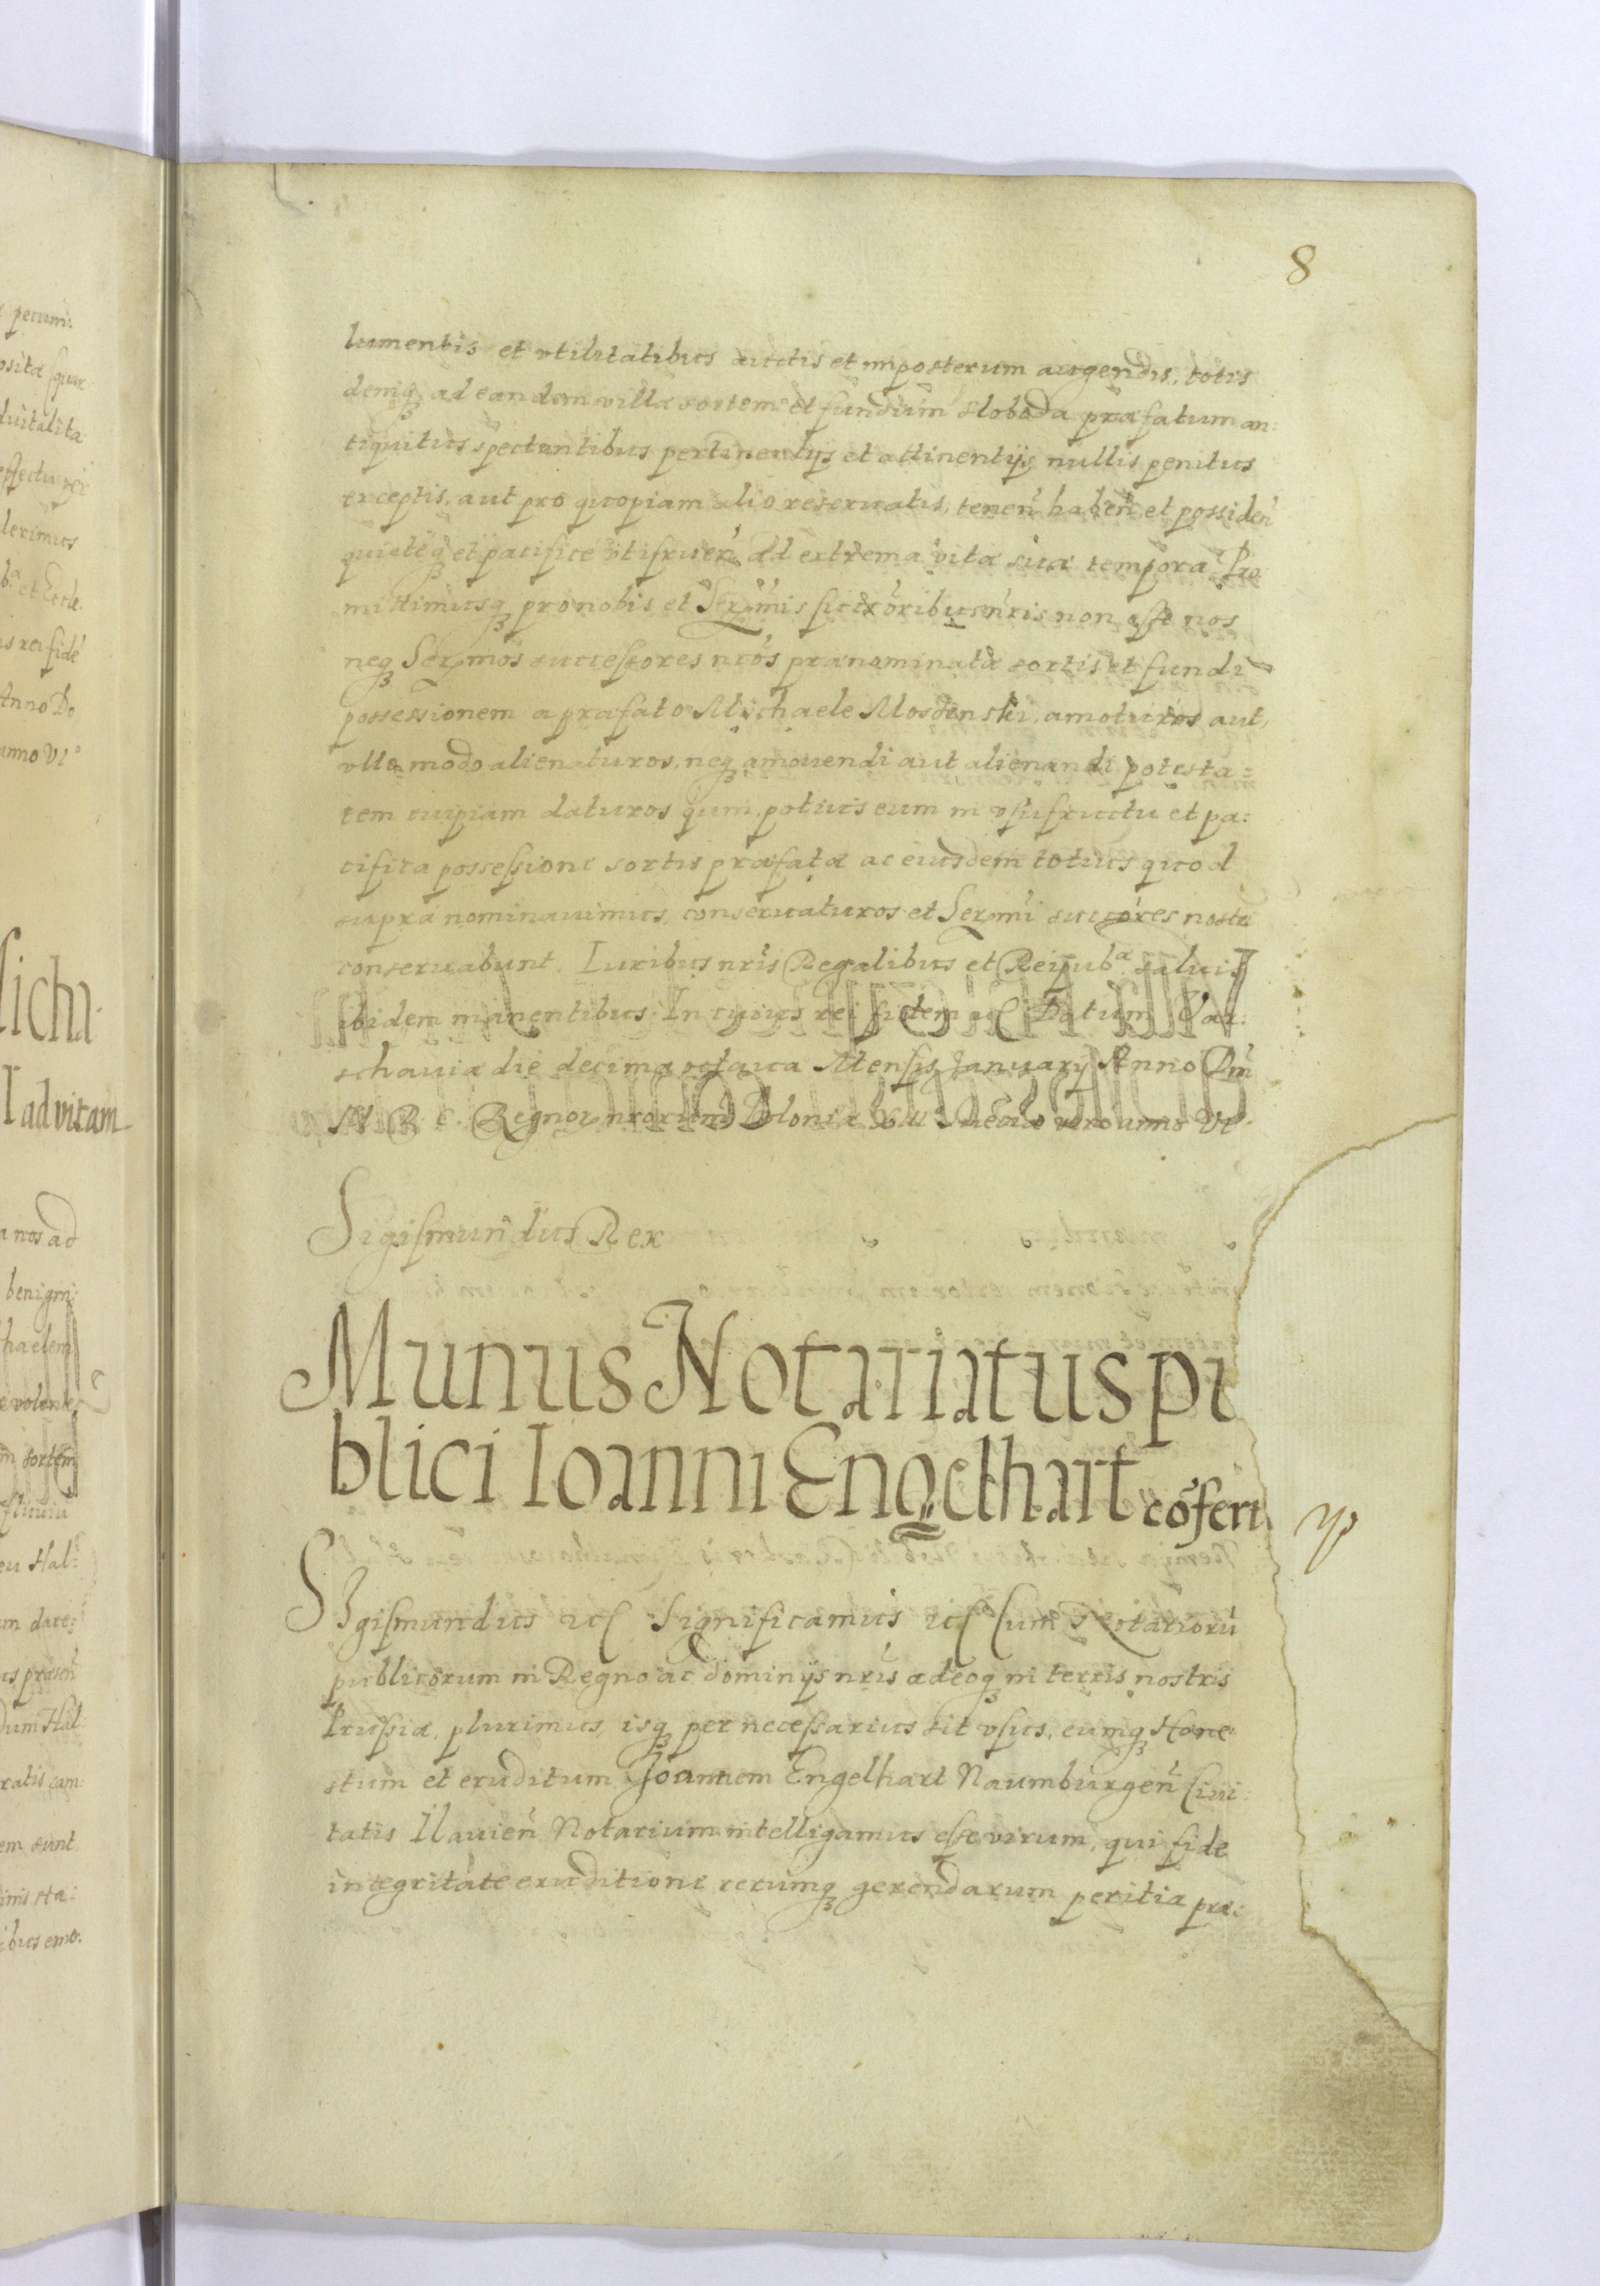 8
lumentis et vtilitatibus auctis et imposterum augendis, totis
deniq ad eandem villæ sortem et fundum Sloboda præfatum an:
tiquitus spectantibus pertinentijs et attinentijs nullis penitus
exceptis, aut pro quopiam alio reseruatis, tenen haben et possiden
quieteq et pacifice vtifruen ad extrema vitæ suæ tempora. Pro
mittimusq pro nobis et Sermis succoribus nris non esse nos
neq Sermos successores nros prænominatæ sortis et fundi
possessionem a præfato Michaele Mosdenski, amoturos aut,
vllo modo alienaturos, neq amouendi aut alienandi potesta:
tem cuipiam daturos quin potius eum in vsufructu et pa:
cifica possessione sortis præfatæ ac eiusdem totius quod
supra nominauimus, conseruaturos et Sermi succores nostri
conseruabunt. Iuribus nris Regalibus et Reipub. saluis
ibidem manentibus. In cuius rei fidem ac Datum Var:
schauiæ die decima octaua Mensis January Anno Dni
Regnor nrorum Poloniæ Sueciæ vero anno VI
Sigismundus Rex
Munus Notariatus pu
blici Ioanni Engelhart coferi
Sigismundus etc Significamus etc Cum Notarioru
publicorum in Regno ac dominijs nris adeoq in terris nostris
Prussiæ, plurimus, isq per necessarius sit vsus, eumq Hone
stum et eruditum Joannem Engelhart Naumburgen Ciui:
tatis Ilauien Notarium intelligamus esse virum, qui fide
integritate eruditione rerumq gerendarum peritia præ: